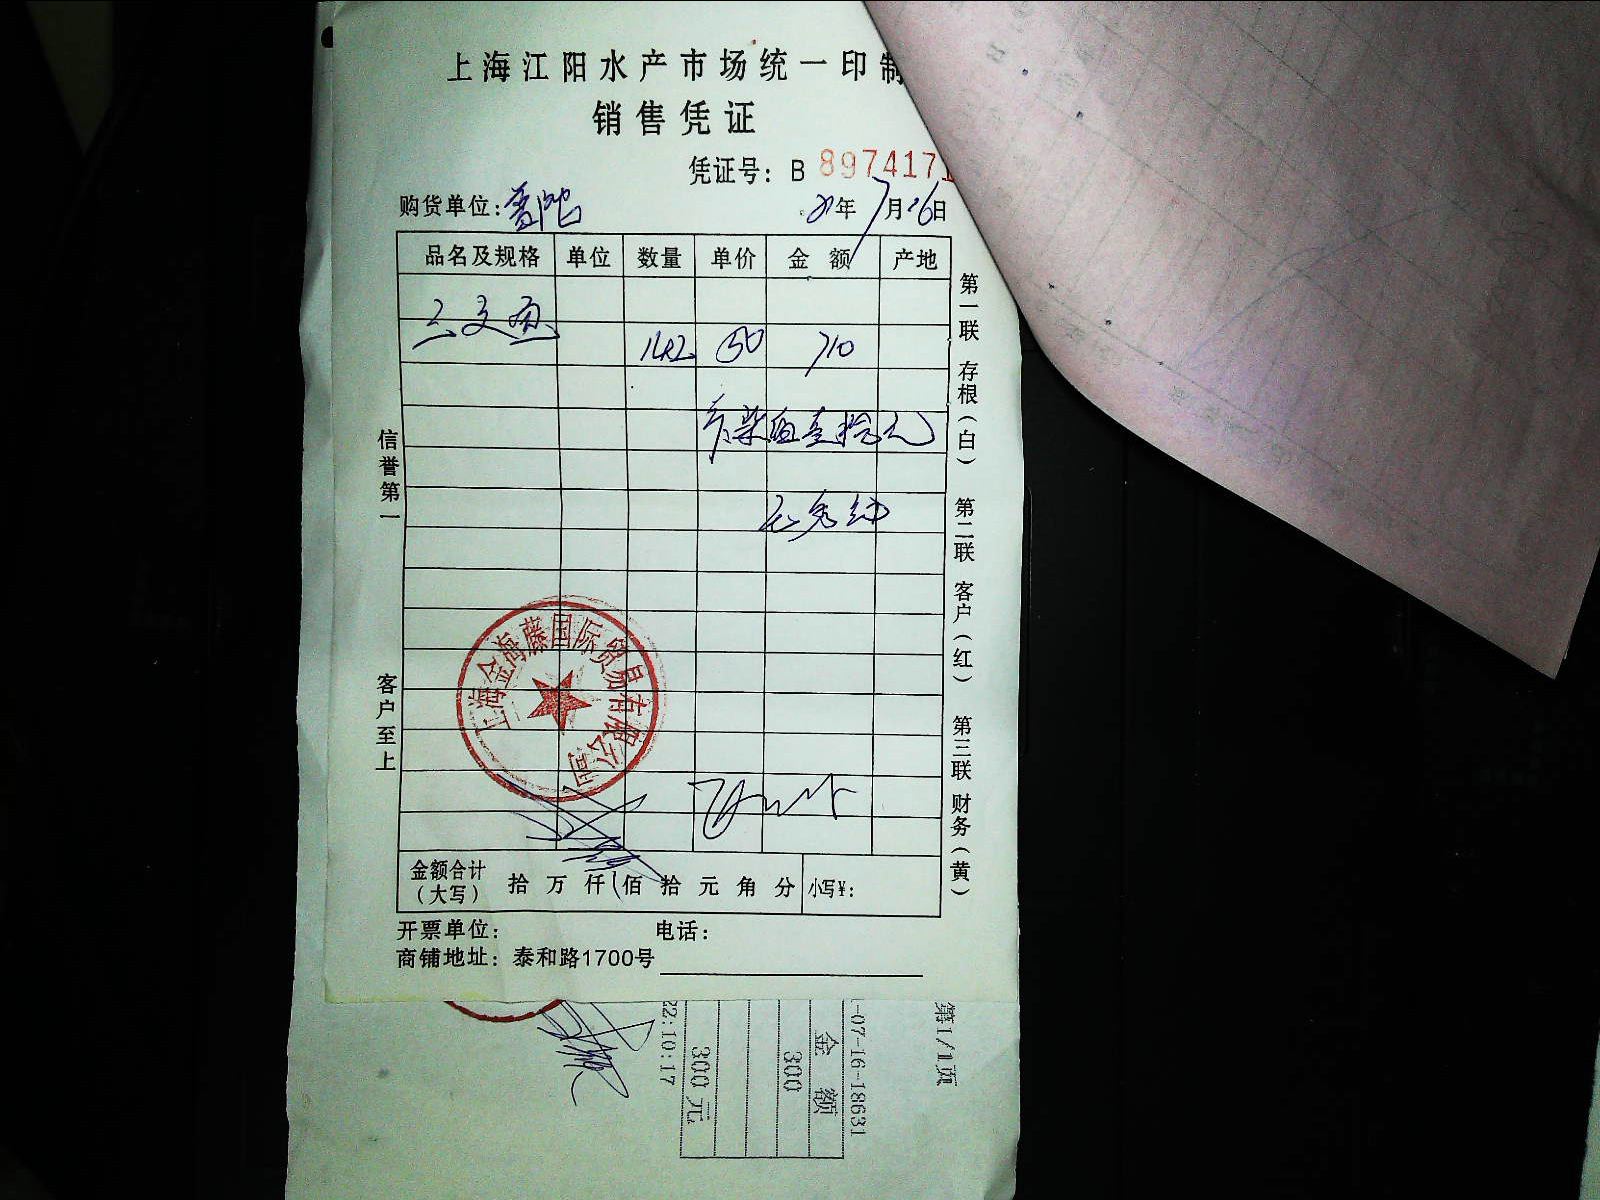 上海江阳水产市场统一印制
销售凭证
凭证号：B 8974171
购货单位：普陀 21年7月16日
品名及规格 单位 数量 单价 金额 产地
三文鱼 14.2 50 710
客户至上 信誉第一
第一联 存根（白） 第二联 客户（红） 第三联 财务（黄）
上海金海藤国际贸易有限公司
金额合计（大写） 拾 万 仟 佰 拾 元 角 分 小写¥：
开票单位： 电话：
商铺地址：泰和路1700号
第1/1页
-07-16-18631
金额
300
300元
22:10:17